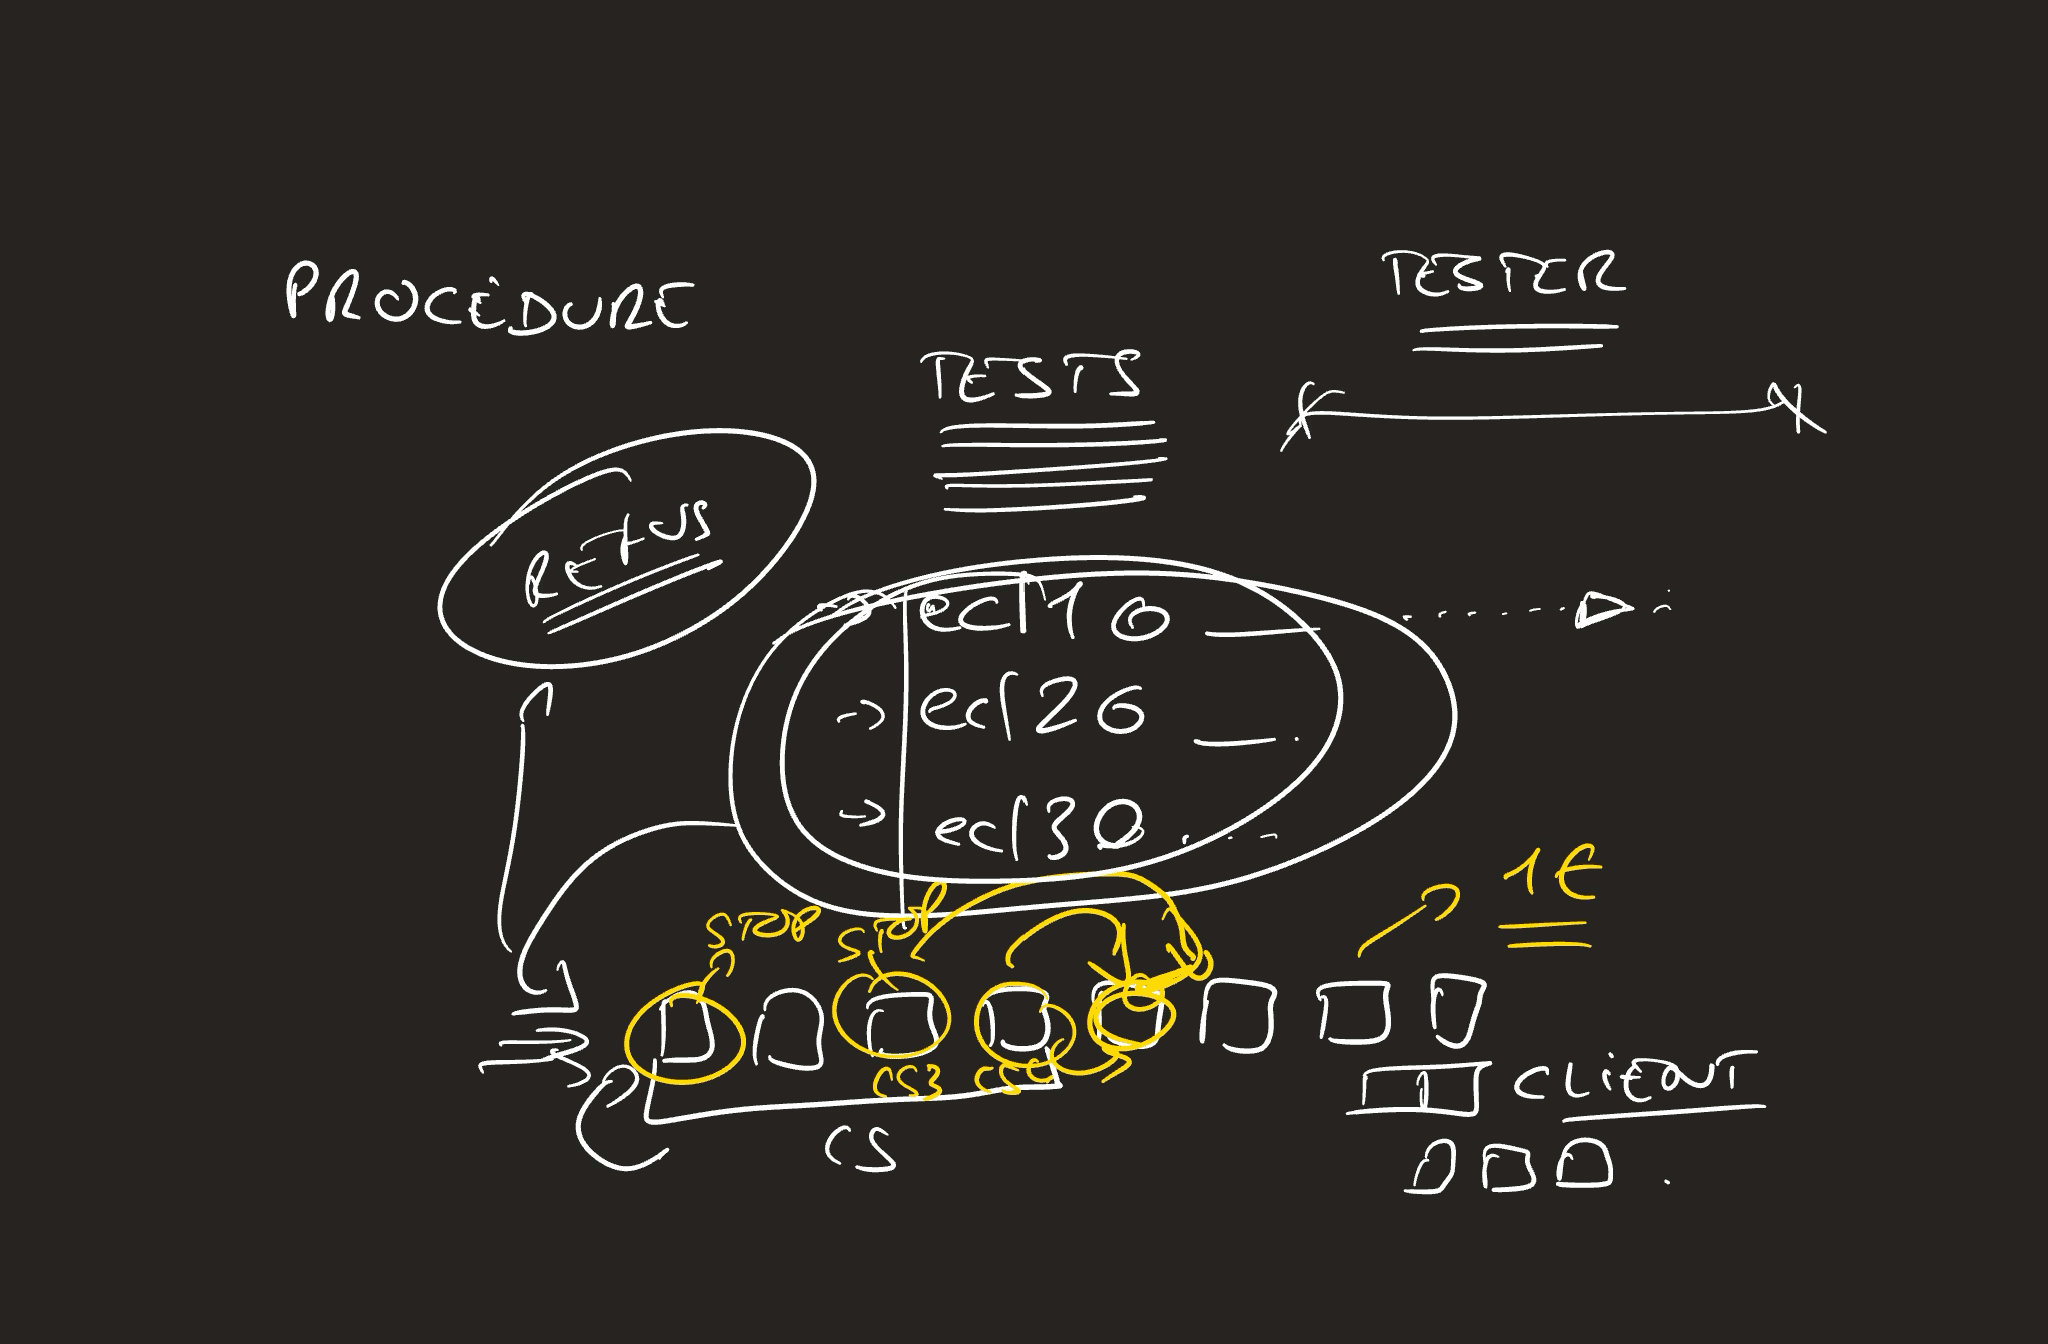 PROCÉDURE
TESTER
TESTS
REFUS
ecf10
ecf20
ecf30
1€
STOP STOP
CS3
CS
CLIENT